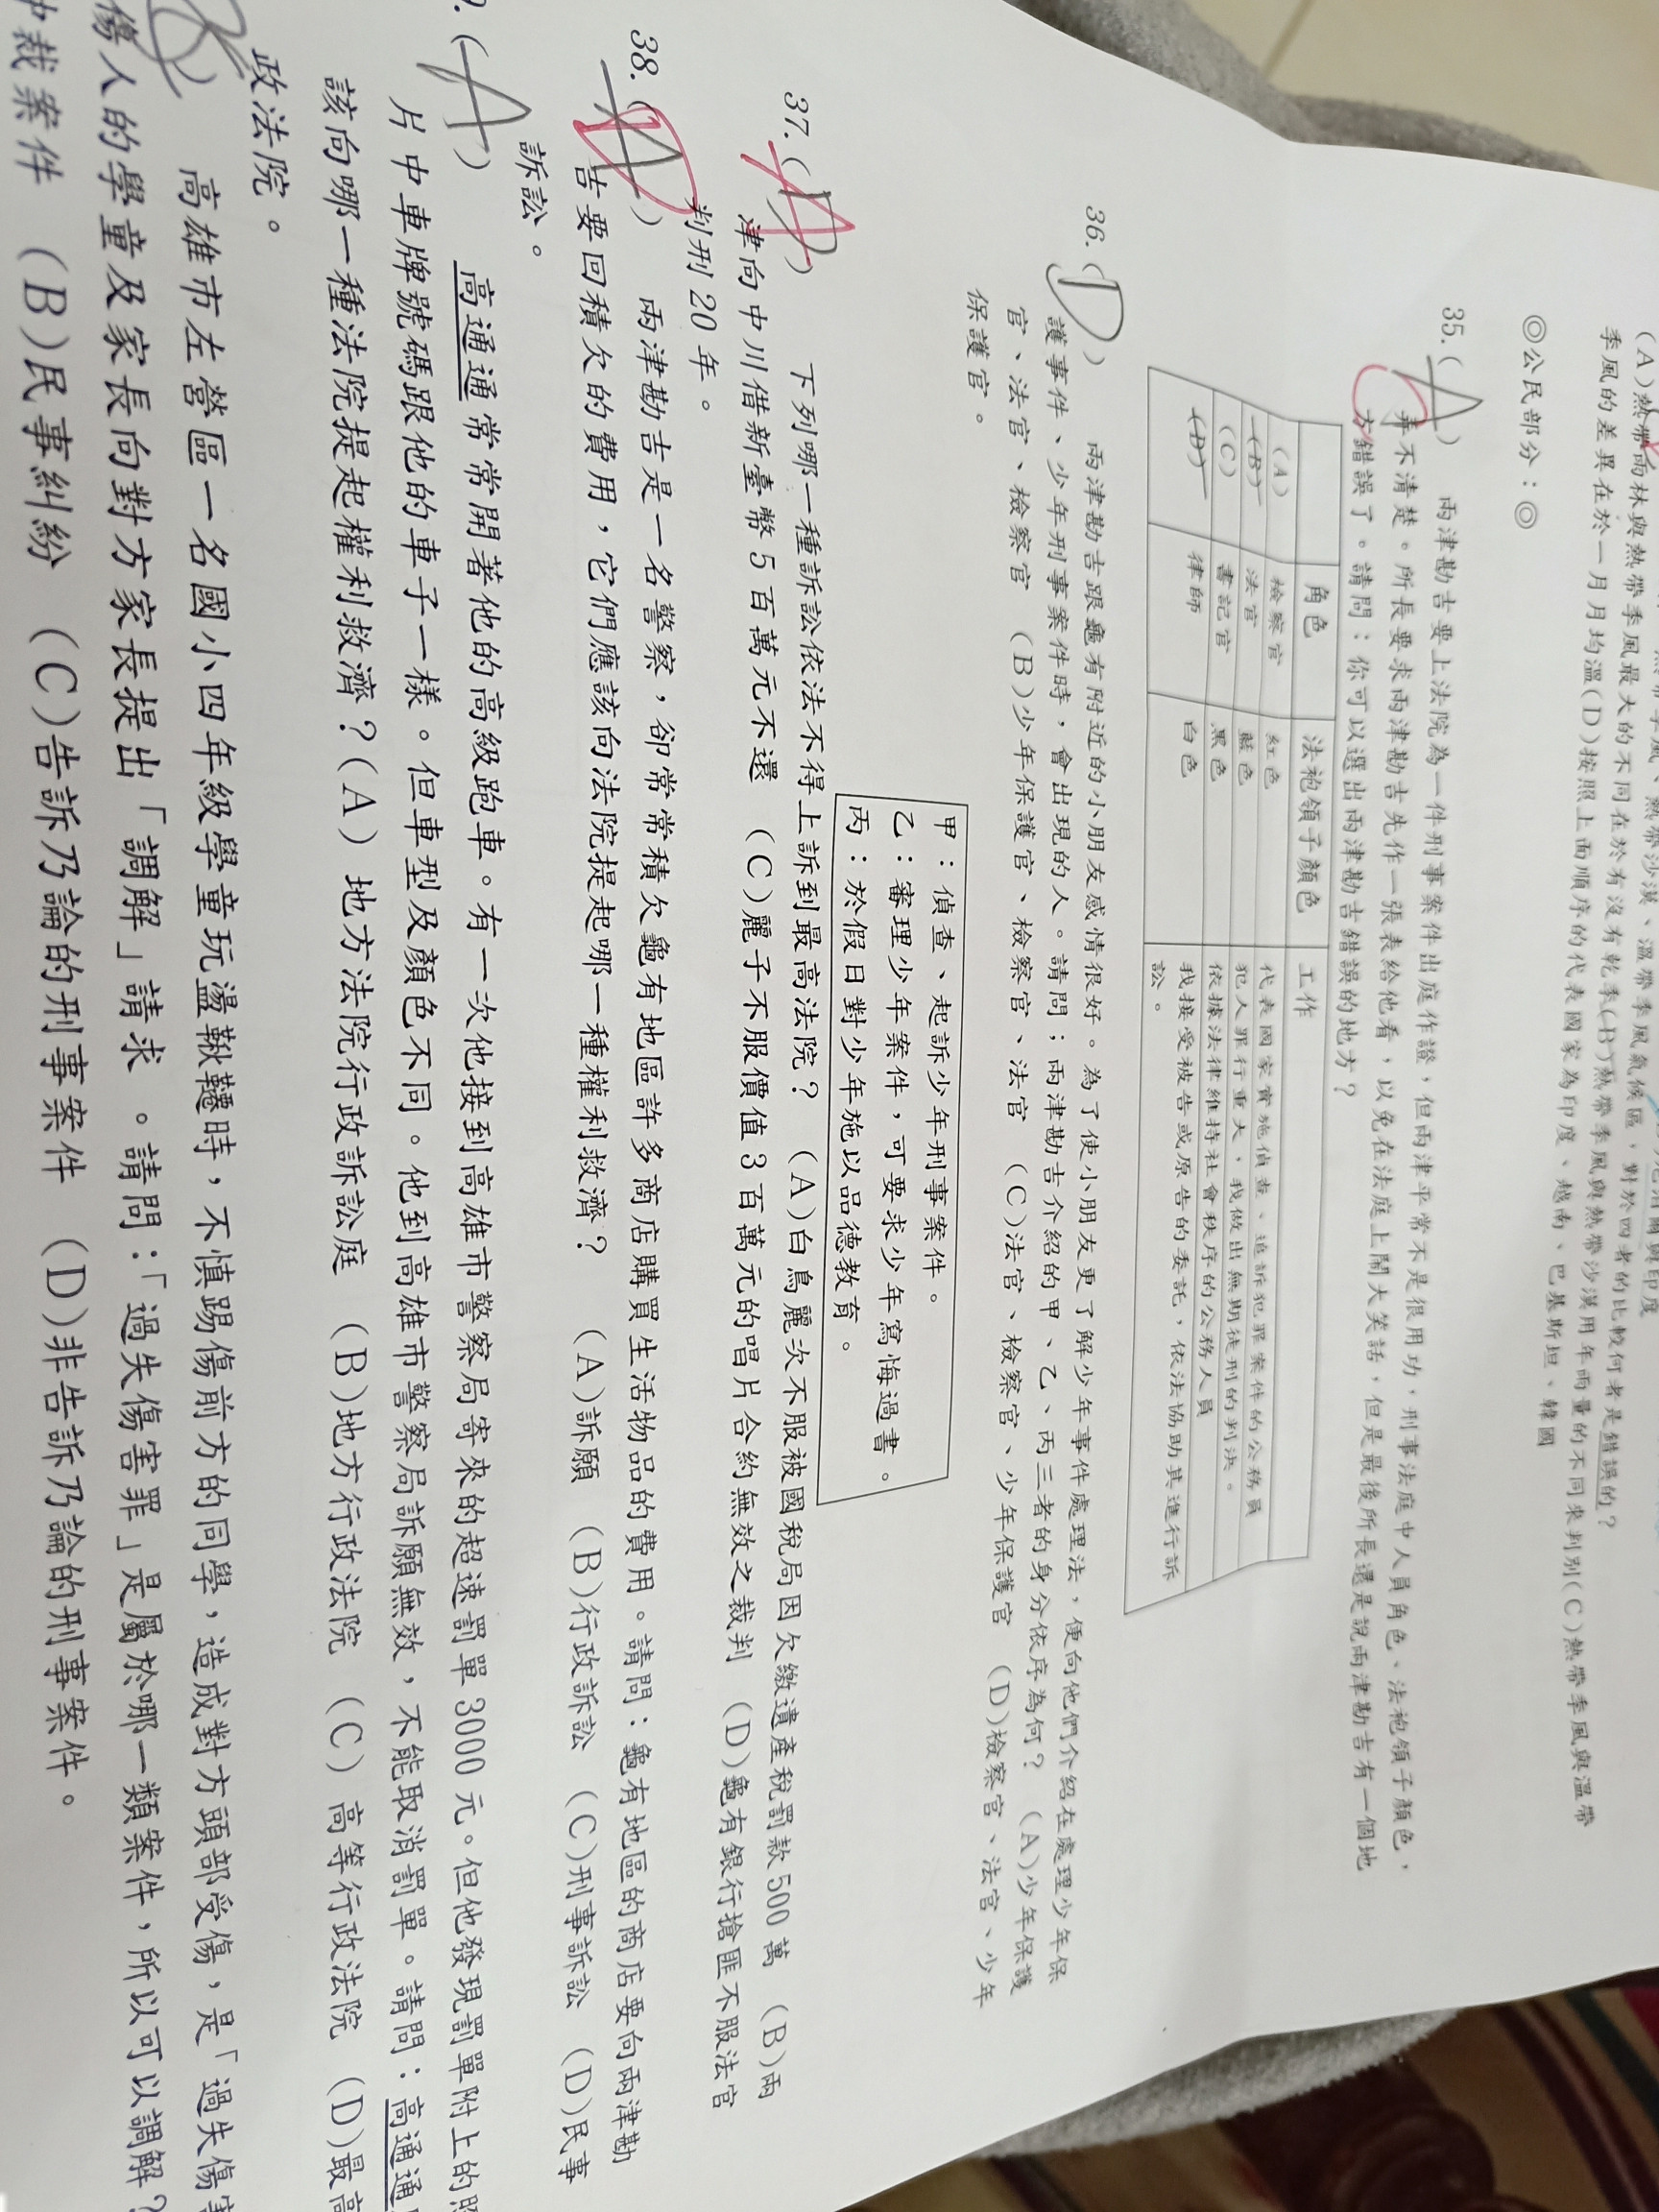 (A)熱帶雨林與熱帶季風最大的不同在於有沒有乾季(B)熱帶季風與熱帶沙漠用年雨量的不同來判別(C)熱帶季風與溫帶
季風的差異在於一月月均溫(D)按照上面順序的代表國家為印度、越南、巴基斯坦、韓國
◎公民部分:◎
35.(A) 兩津勘吉要上法院為一件刑事案件出庭作證,但兩津平常不是很用功,刑事法庭中人員角色、法袍領子顏色,
弄不清楚。所長要求兩津勘吉先作一張表給他看,以免在法庭上鬧大笑話,但是最後所長還是說兩津勘吉有一個地
方錯誤了。請問:你可以選出兩津勘吉錯誤的地方?
角色 法袍領子顏色 工作
(A) 檢察官 紅色 代表國家實施偵查、追訴犯罪案件的公務員
(B) 法官 藍色 犯人罪行重大,我做出無期徒刑的判決。
(C) 書記官 黑色 依據法律維持社會秩序的公務人員
(D) 律師 白色 我接受被告或原告的委託,依法協助其進行訴
訟。
36.(D) 兩津勘吉跟龜有附近的小朋友感情很好。為了使小朋友更了解少年事件處理法,便向他們介紹在處理少年保
護事件、少年刑事案件時,會出現的人。請問;兩津勘吉介紹的甲、乙、丙三者的身分依序為何? (A)少年保護
官、法官、檢察官 (B)少年保護官、檢察官、法官 (C)法官、檢察官、少年保護官 (D)檢察官、法官、少年
保護官。
甲:偵查、起訴少年刑事案件。
乙:審理少年案件,可要求少年寫悔過書。
丙:於假日對少年施以品德教育。
37.( A ) 下列哪一種訴訟依法不得上訴到最高法院? (A)白鳥麗次不服被國稅局因欠繳遺產稅罰款500萬 (B)兩
津向中川借新臺幣5百萬元不還 (C)麗子不服價值3百萬元的唱片合約無效之裁判 (D)龜有銀行搶匪不服法官
判刑20年。
38.( D ) 兩津勘吉是一名警察,卻常常積欠龜有地區許多商店購買生活物品的費用。請問:龜有地區的商店要向兩津勘
吉要回積欠的費用,它們應該向法院提起哪一種權利救濟? (A)訴願 (B)行政訴訟 (C)刑事訴訟 (D)民事
訴訟。
9.(A) 高通通常常開著他的高級跑車。有一次他接到高雄市警察局寄來的超速罰單3000元。但他發現罰單附上的照
片中車牌號碼跟他的車子一樣。但車型及顏色不同。他到高雄市警察局訴願無效,不能取消罰單。請問:高通通
該向哪一種法院提起權利救濟?(A) 地方法院行政訴訟庭 (B)地方行政法院 (C) 高等行政法院 (D)最高
政法院。
) 高雄市左營區一名國小四年級學童玩盪鞦韆時,不慎踢傷前方的同學,造成對方頭部受傷,是「過失傷害
傷人的學童及家長向對方家長提出「調解」請求 。請問:「過失傷害罪」是屬於哪一類案件,所以可以調解?
仲裁案件 (B)民事糾紛 (C)告訴乃論的刑事案件 (D)非告訴乃論的刑事案件。